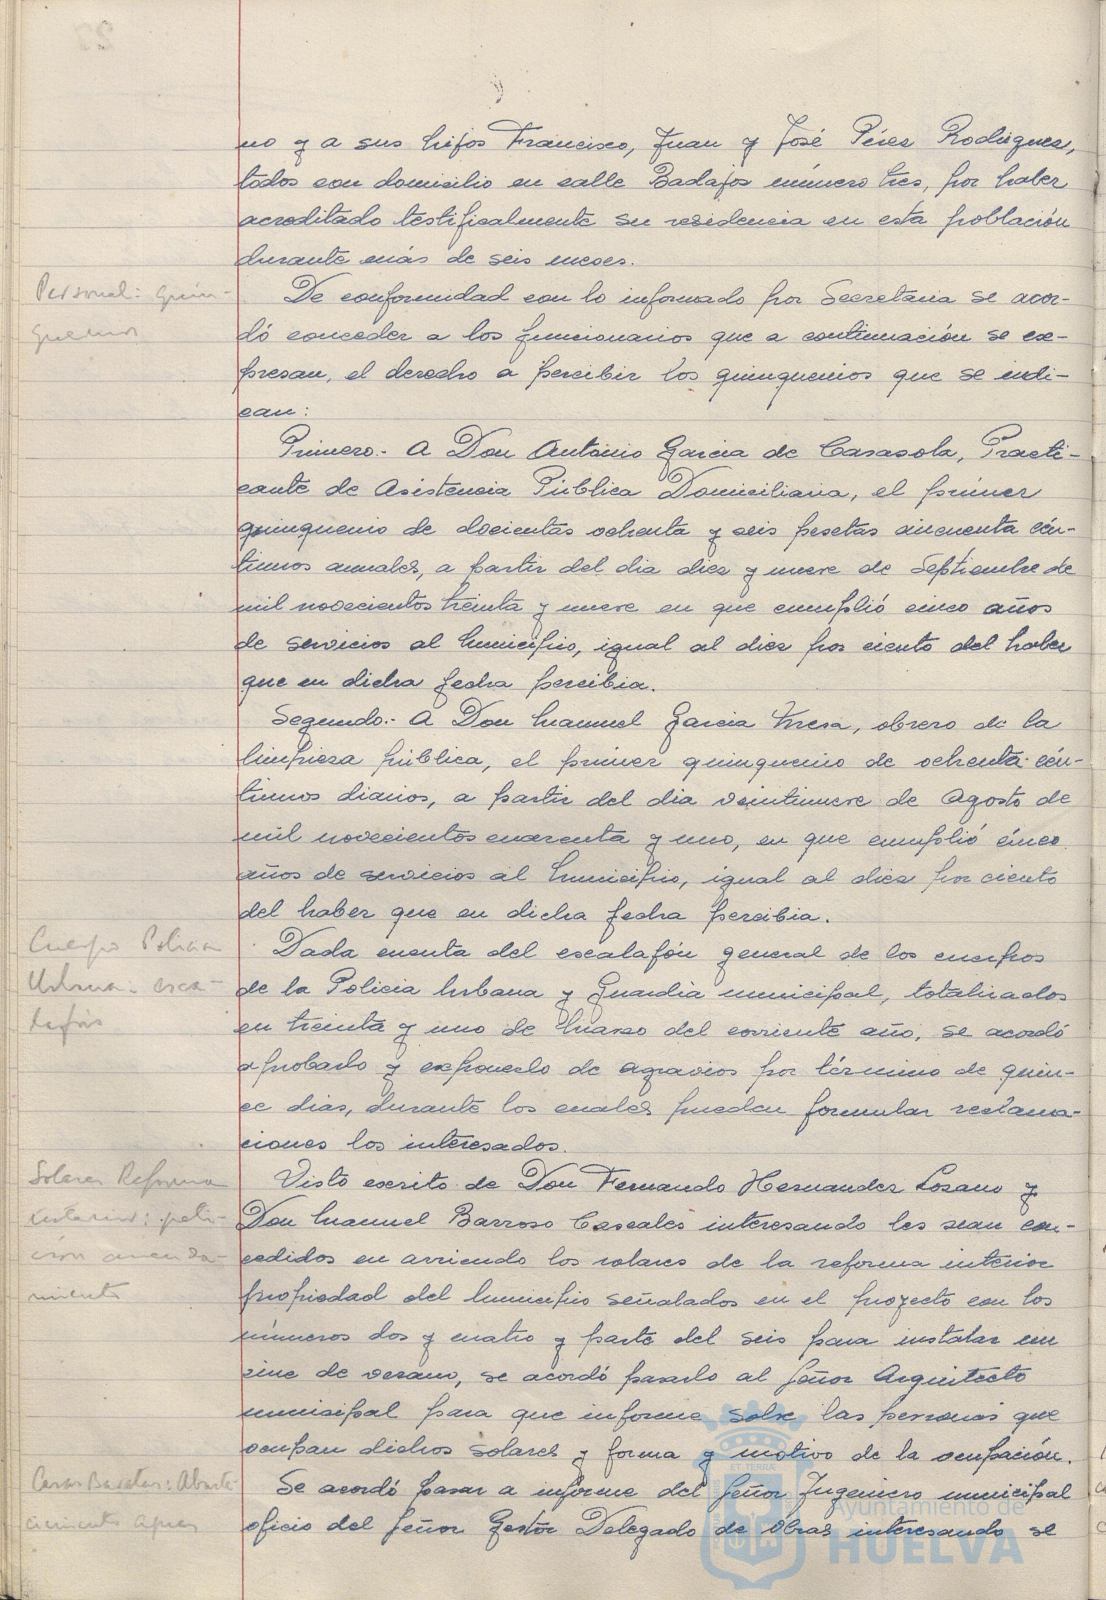 no y a sus hijos Francisco, Juan y José Pérez Rodriguez,
todos con domicilio en calle Badajos número tres, por haber
acreditado testificalmente su residencia en esta población
durante más de seis meses.
Personal: quin-
quenios
De conformidad con lo informado por Secretaria se acor-
dó conceder a los funcionarios que a continuación se ex-
presan, el derecho a percibir los quinquenios que se indi-
can:
Primero.- A Don Antonio Garcia de Casasola, Practi-
cante de Asistencia Pública Domiciliaria, el primer
quinquenio de docientas ochenta y seis pesetas cincuenta cén-
timos anuales, a partir del dia diez y nueve de Septiembre de
mil novecientos treinta y nueve en que cumplió cinco años
de servicios al Municipio, igual al diez por ciento del haber
que en dicha fecha percibia.
Segundo.- A Don Manuel Garcia , obrero de la
limpieza pública, el primer quinquenio de ochenta cén-
timos diarios, a partir del dia veintinueve de Agosto de
mil novecientos cuarenta y uno, en que cumplió cinco
años de servicios al Municipio, igual al diez por ciento
del haber que en dicha fecha percibia.
Cuerpo Policia
Urbana. esca-
lafón
Dada cuenta del escalafón general de los cuerpos
de la Policia Urbana y Guardia municipal, totalizados
en treinta y uno de Marzo del corriente año, se acordó
aprobarlo y exponerlo de agravios por término de quin-
ce dias, durante los cuales pueden formular reclama-
ciones los interesados.
Solares Reforma
interior: peti-
ción arrenda-
miento
Visto escrito de Don Fernando Hernandez Lozano y
Don Manuel Barroso Cascales interesando les sean con-
cedidos en arriendo los solares de la reforma interior
propiedad del Municipio señalados en el proyecto con los
números dos y cuatro y parte del seis para instalar un
cine de verano, se acordó pasarlo al Señor Arquitecto
municipal para que informe sobre las personas que
ocupan dichos solares y forma y motivo de la ocupación.
Casas Baratas: Abaste-
cimiento aguas
Se acordó pasar a informe del Señor Ingeniero municipal
oficio del Señor Gestor Delegado de Obras interesando se
Ayuntamiento de
HUELVA